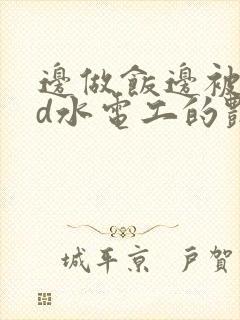 邊做飯邊被
d水電工的
城平京 戶賀